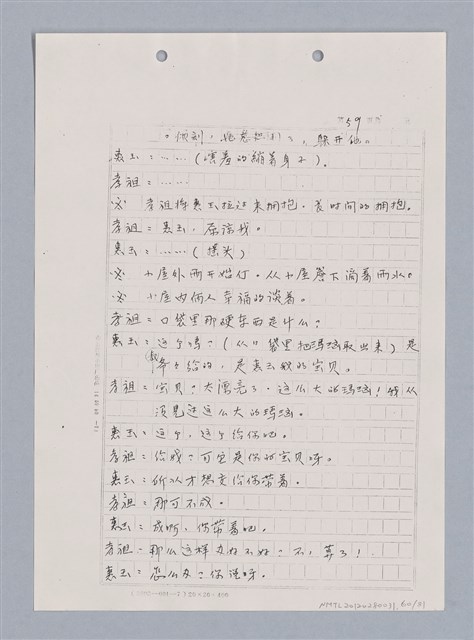 59
惠玉：……（害羞的縮著身子）。
孝祖：……
※ 孝祖将惠玉拉过来拥抱，長时间的拥抱。
孝祖：惠玉，原谅我。
惠玉：……（摇头）
※ 小屋外雨开始停。从小屋簷下滴着雨水。
※ 小屋内俩人幸福的谈着。
孝祖：口袋里那硬东西是什么？
惠玉：这个吗？（从口袋里把取出来）是
爷爷给的，是惠玉我的宝贝。
孝祖：宝贝？太漂亮了，这么大的！我从
没見过这么大的
惠玉：这个，这个给你吧。
孝祖：给我？可它是你的宝贝呀。
惠玉：所以才想交给你带着。
孝祖：那可不成。
惠玉：成啊，你带着吧。
孝祖：那么这样好不好？不，算了！
惠玉：怎么办？你说呀。